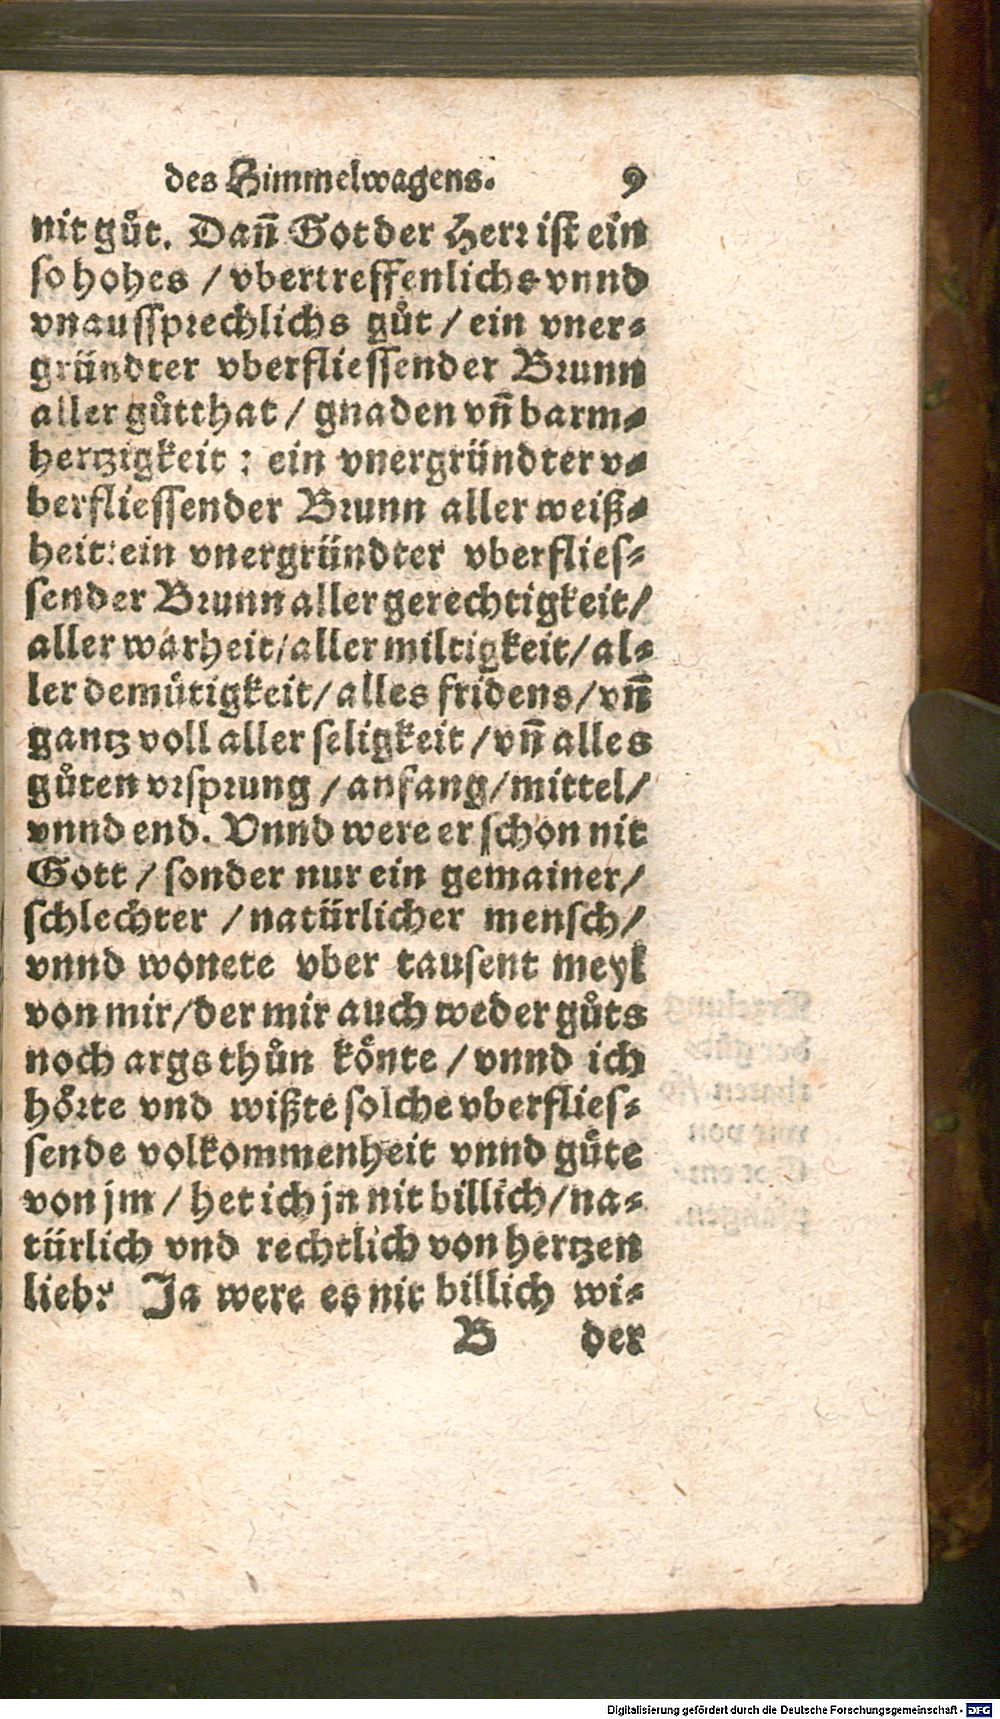 des Himmelwagens. 9
nit gůt. Dañ Got der Herr ist ein
so hohes / vbertreffenlichs vnnd
vnaussprechlichs gůt / ein vner-
gründter vberfliessender Brunn
aller gůtthat / gnaden vñ barm-
hertzigkeit : ein vnergründter v-
berfliessender Brunn aller weiß-
heit: ein vnergründter vberflies-
sender Brunn aller gerechtigkeit/
aller warheit/aller miltigkeit/al-
ler demůtigkeit/alles fridens/vñ
gantz voll aller seligkeit /vñ alles
gůten vrsprung /anfang/mittel/
vnnd end. Vnnd were er schon nit
Gott / sonder nur ein gemainer/
schlechter /natürlicher mensch/
vnnd wonete vber tausent meyl
von mir/der mir auch weder gůts
noch args thůn koͤnte / vnnd ich
hoͤrte vnd wißte solche vberflies-
sende volkommenheit vnnd gůte
von jm / het ich jn nit billich/na-
türlich vnd rechtlich von hertzen
lieb? Ja were es nit billich wi-
B der
Digitalisierung gefördert durch die Deutsche Forschungsgemeinschaft - DFG